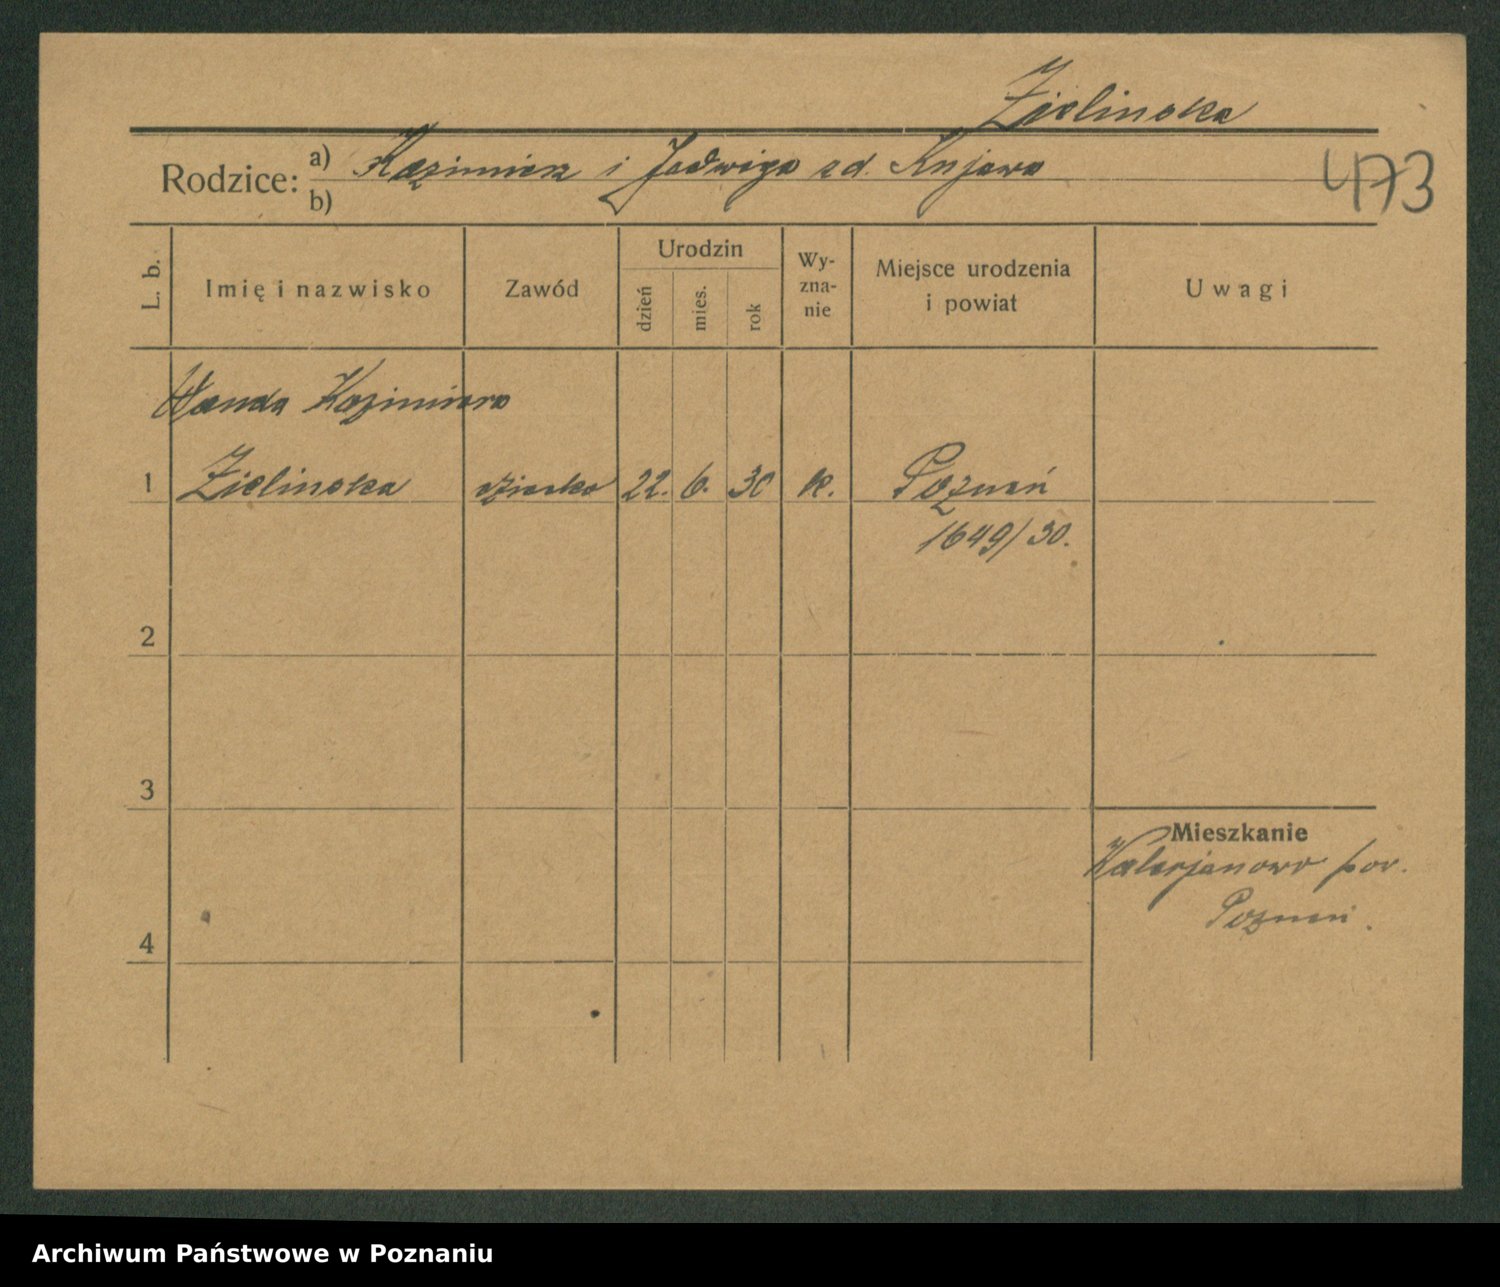 Zielinska
Rodzice: a) Kazimierz i Jadwiga zd. Kujawa
b)
473
L. b.
Imię i nazwisko
Zawód
Urodzin
dzień
mies.
rok
Wy-
zna-
nie
Miejsce urodzenia
i powiat
Uwagi
Wanda Kazimiera
1 Zielinska dziecko 22. 6. 30 k. Poznań
1649/30.
2
3
Mieszkanie
Walerjanowo pow.
Poznań.
4
Archiwum Państwowe w Poznaniu